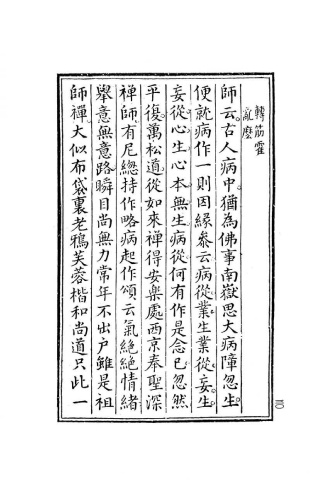 轉筋霍
亂麼
師云古人病中猶為佛事南嶽思大病障忽生
便就病作一則因緣叅云病從業生業從妄生
妄從心生心本無生病從何有作是念已忽然
平復萬松道從如來禪得安樂處西京奉聖深
禪師有尼緫持作略病起作頌云氣絶絶情緒
舉意無意路瞬目尚無力常年不出戶雖是祖
師禪大似布袋裏老鴉芙蓉楷和尚道只此一